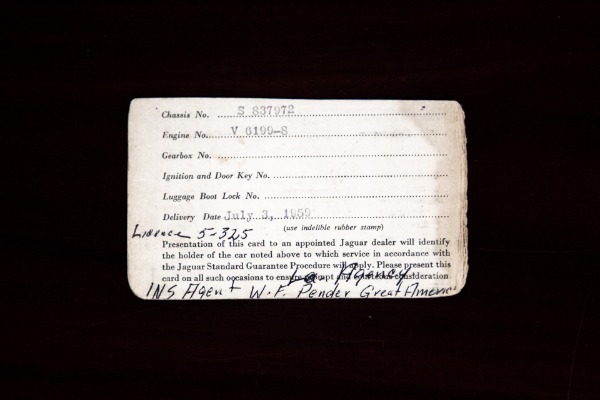 Chassis No. S 837972
Engine No. V 6199-8
Gearbox No.
Ignition and Door Key No.
Luggage Boot Lock No.
Delivery Date July 3, 1959
(use indelible rubber stamp)
Licence 5-325
Presentation of this card to an appointed Jaguar dealer will identify
the holder of the car noted above to which service in accordance with
the Jaguar Standard Guarantee Procedure will apply. Please present this
card on all such occasions to ensure prompt and courteous consideration
Agency
INS Agent W.F. Pender Great Americ